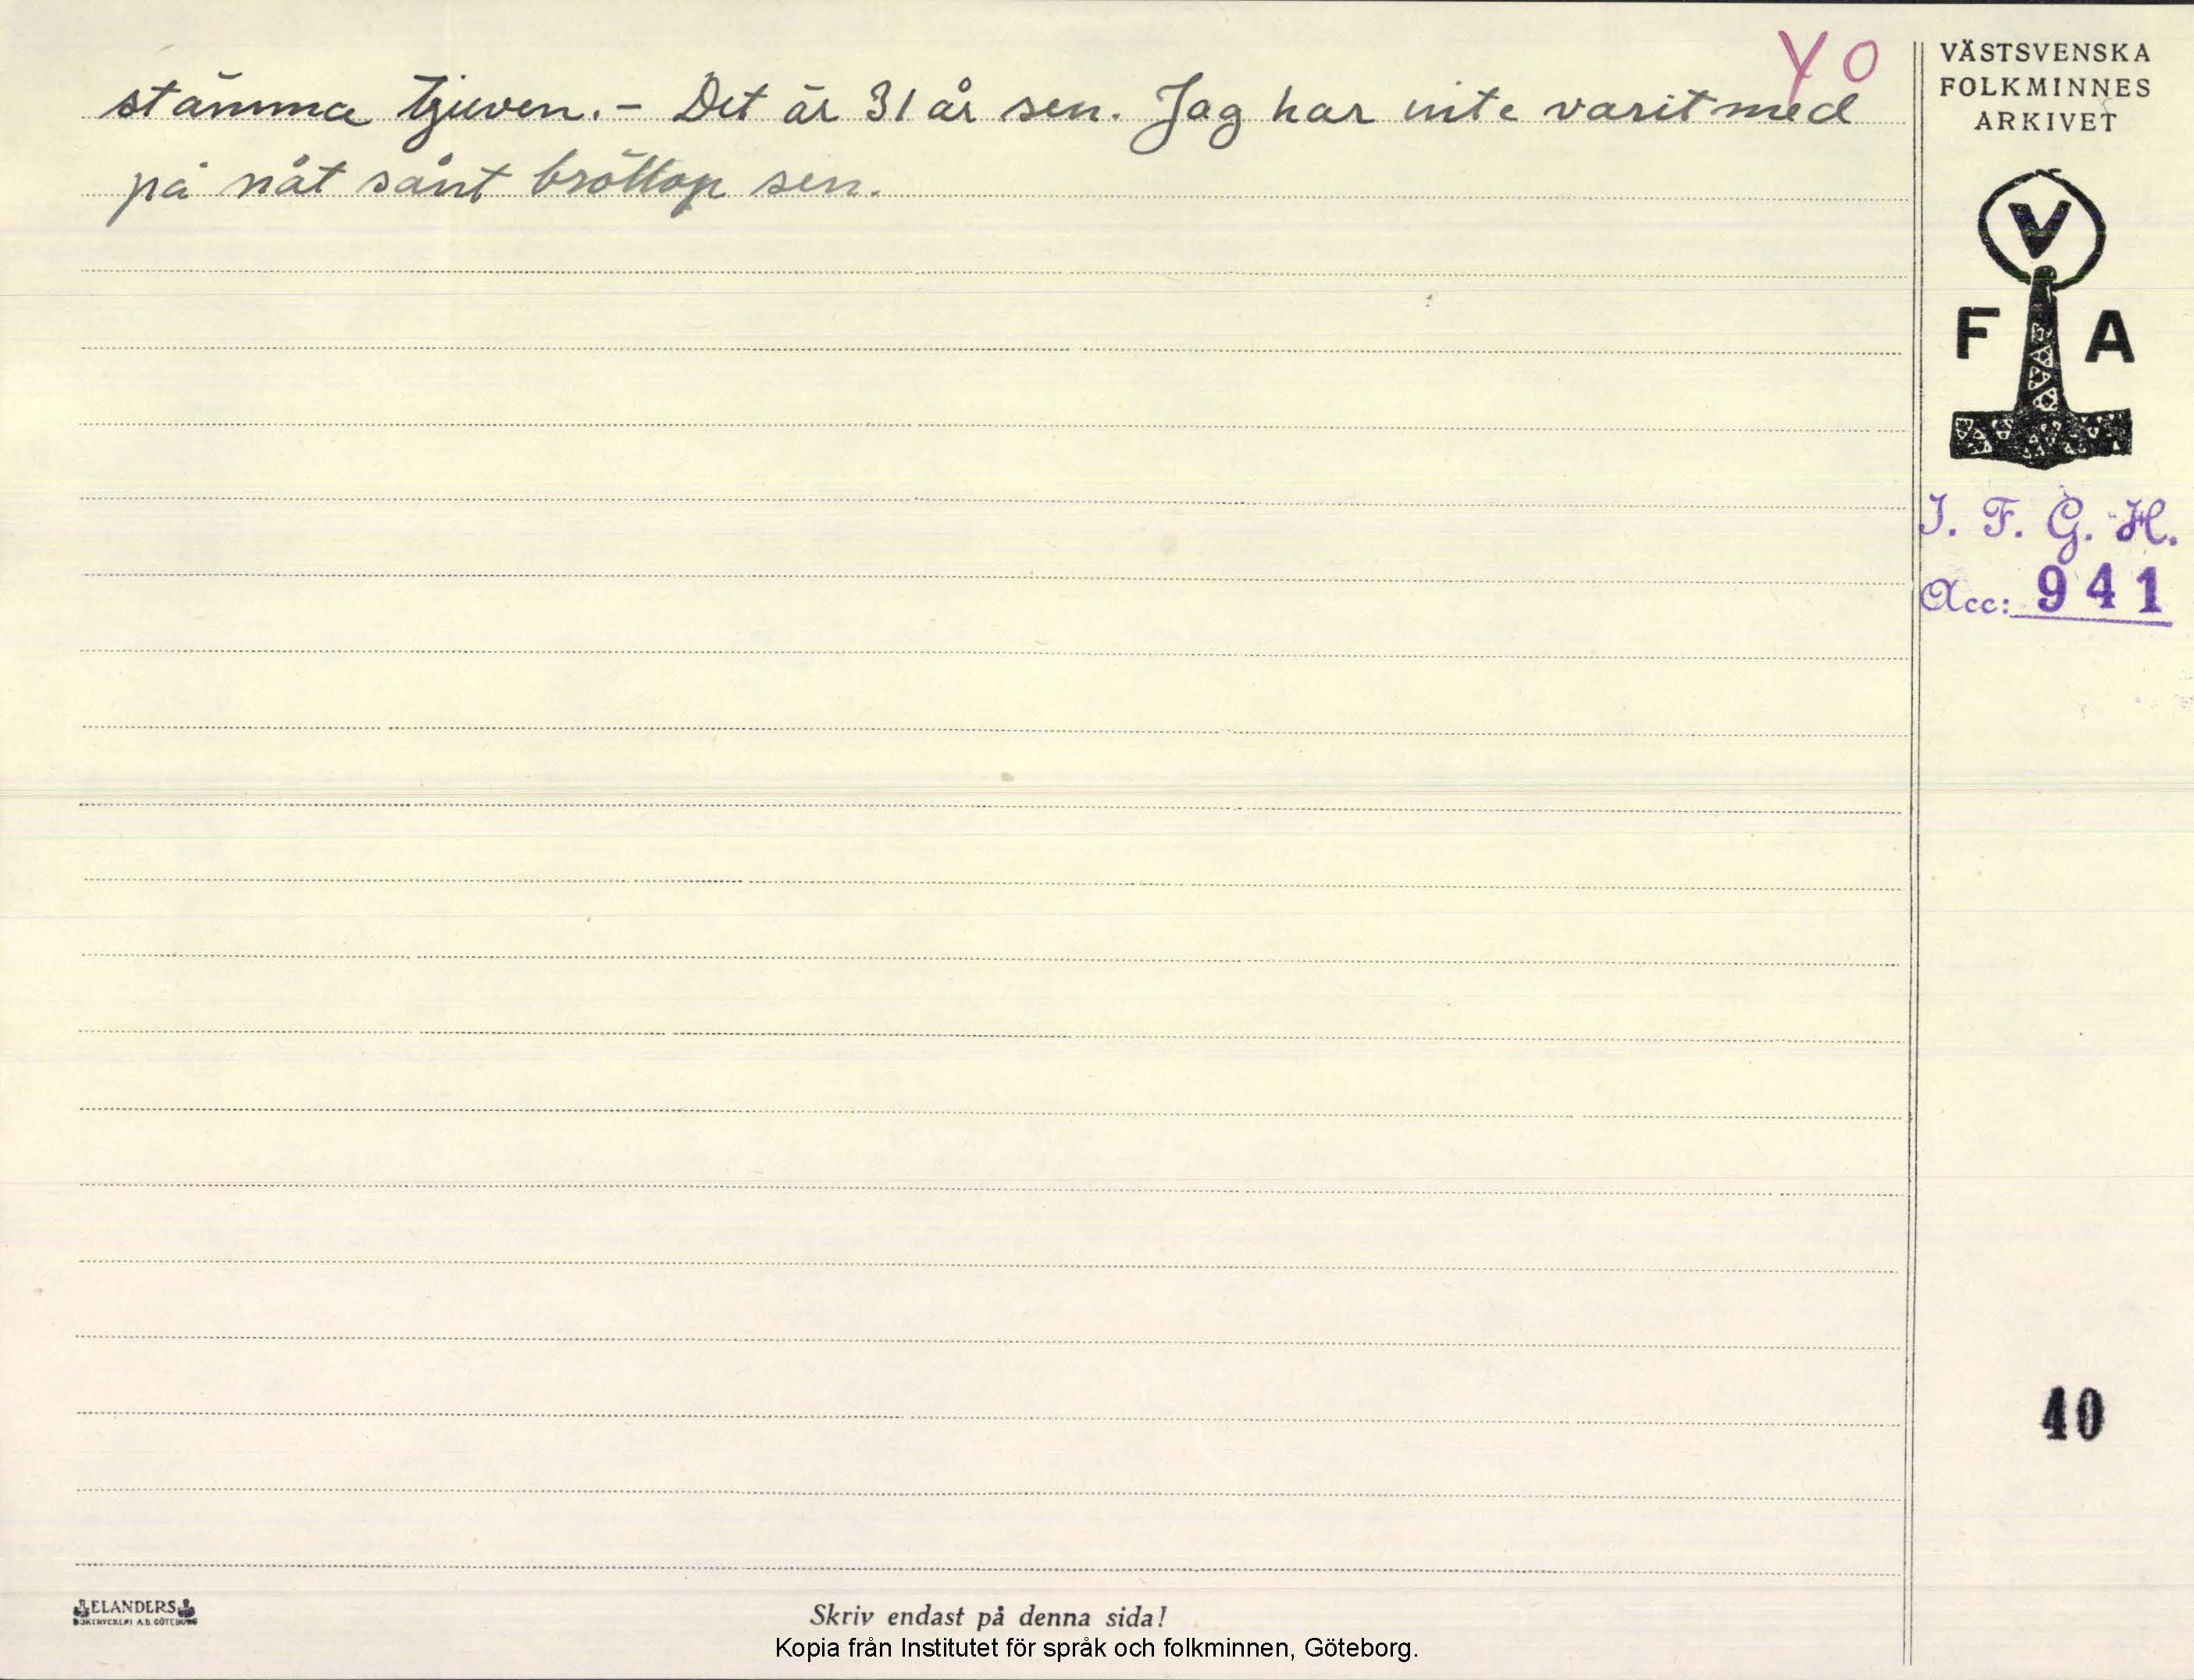 YO
stämma tjuven. - Det är 31 år sen. Jag har inte varit med
på nåt sånt bröllop sen.
VÄSTSVENSKA
FOLKMINNES
ARKIVET
V
F A
I. F. G. H.
Acc: 941
40
ELANDERS
BOKTRYCKERI A.B. GÖTEBORG
Skriv endast på denna sida!
Kopia från Institutet för språk och folkminnen, Göteborg.